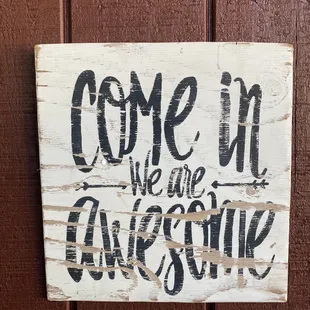 come in
we are
awesome